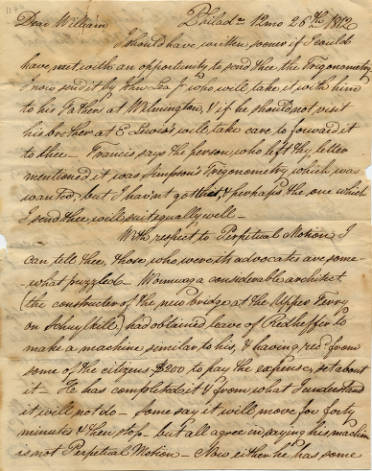 Dear William Philad.a 12mo 26th 1812
I should have written sooner if I could
have met with an opportunity to send thee the Trigonometry
I now send it by Thos Lea Jr who will take it with him
to his Father at Wilmington, & if he should not visit
his brother at E Lewis's will take care to forward it
to thee – Francis says the person who left thy letter
mentioned it was Simpson's Trigonometry which was
wanted, but I have not got that, & perhaps the one which
I send thee, will suit equally well –
With respect to Perpetual Motion I
can tell thee, those who were its advocates are some-
-what puzzled – Wernwag a considerable architect
(the constructer of the new bridge at the Upper Ferry
on Schuylkill) had obtained leave of Redheffer to
make a machine similar to his, & having recd from
some of the citizens $200 to pay the expense, set about
it – He has completed it & from what I understand
it will not do – Some say it will move for forty
minutes & then stop – but all agree in saying his machine
is not Perpetual Motion – Now either he has some